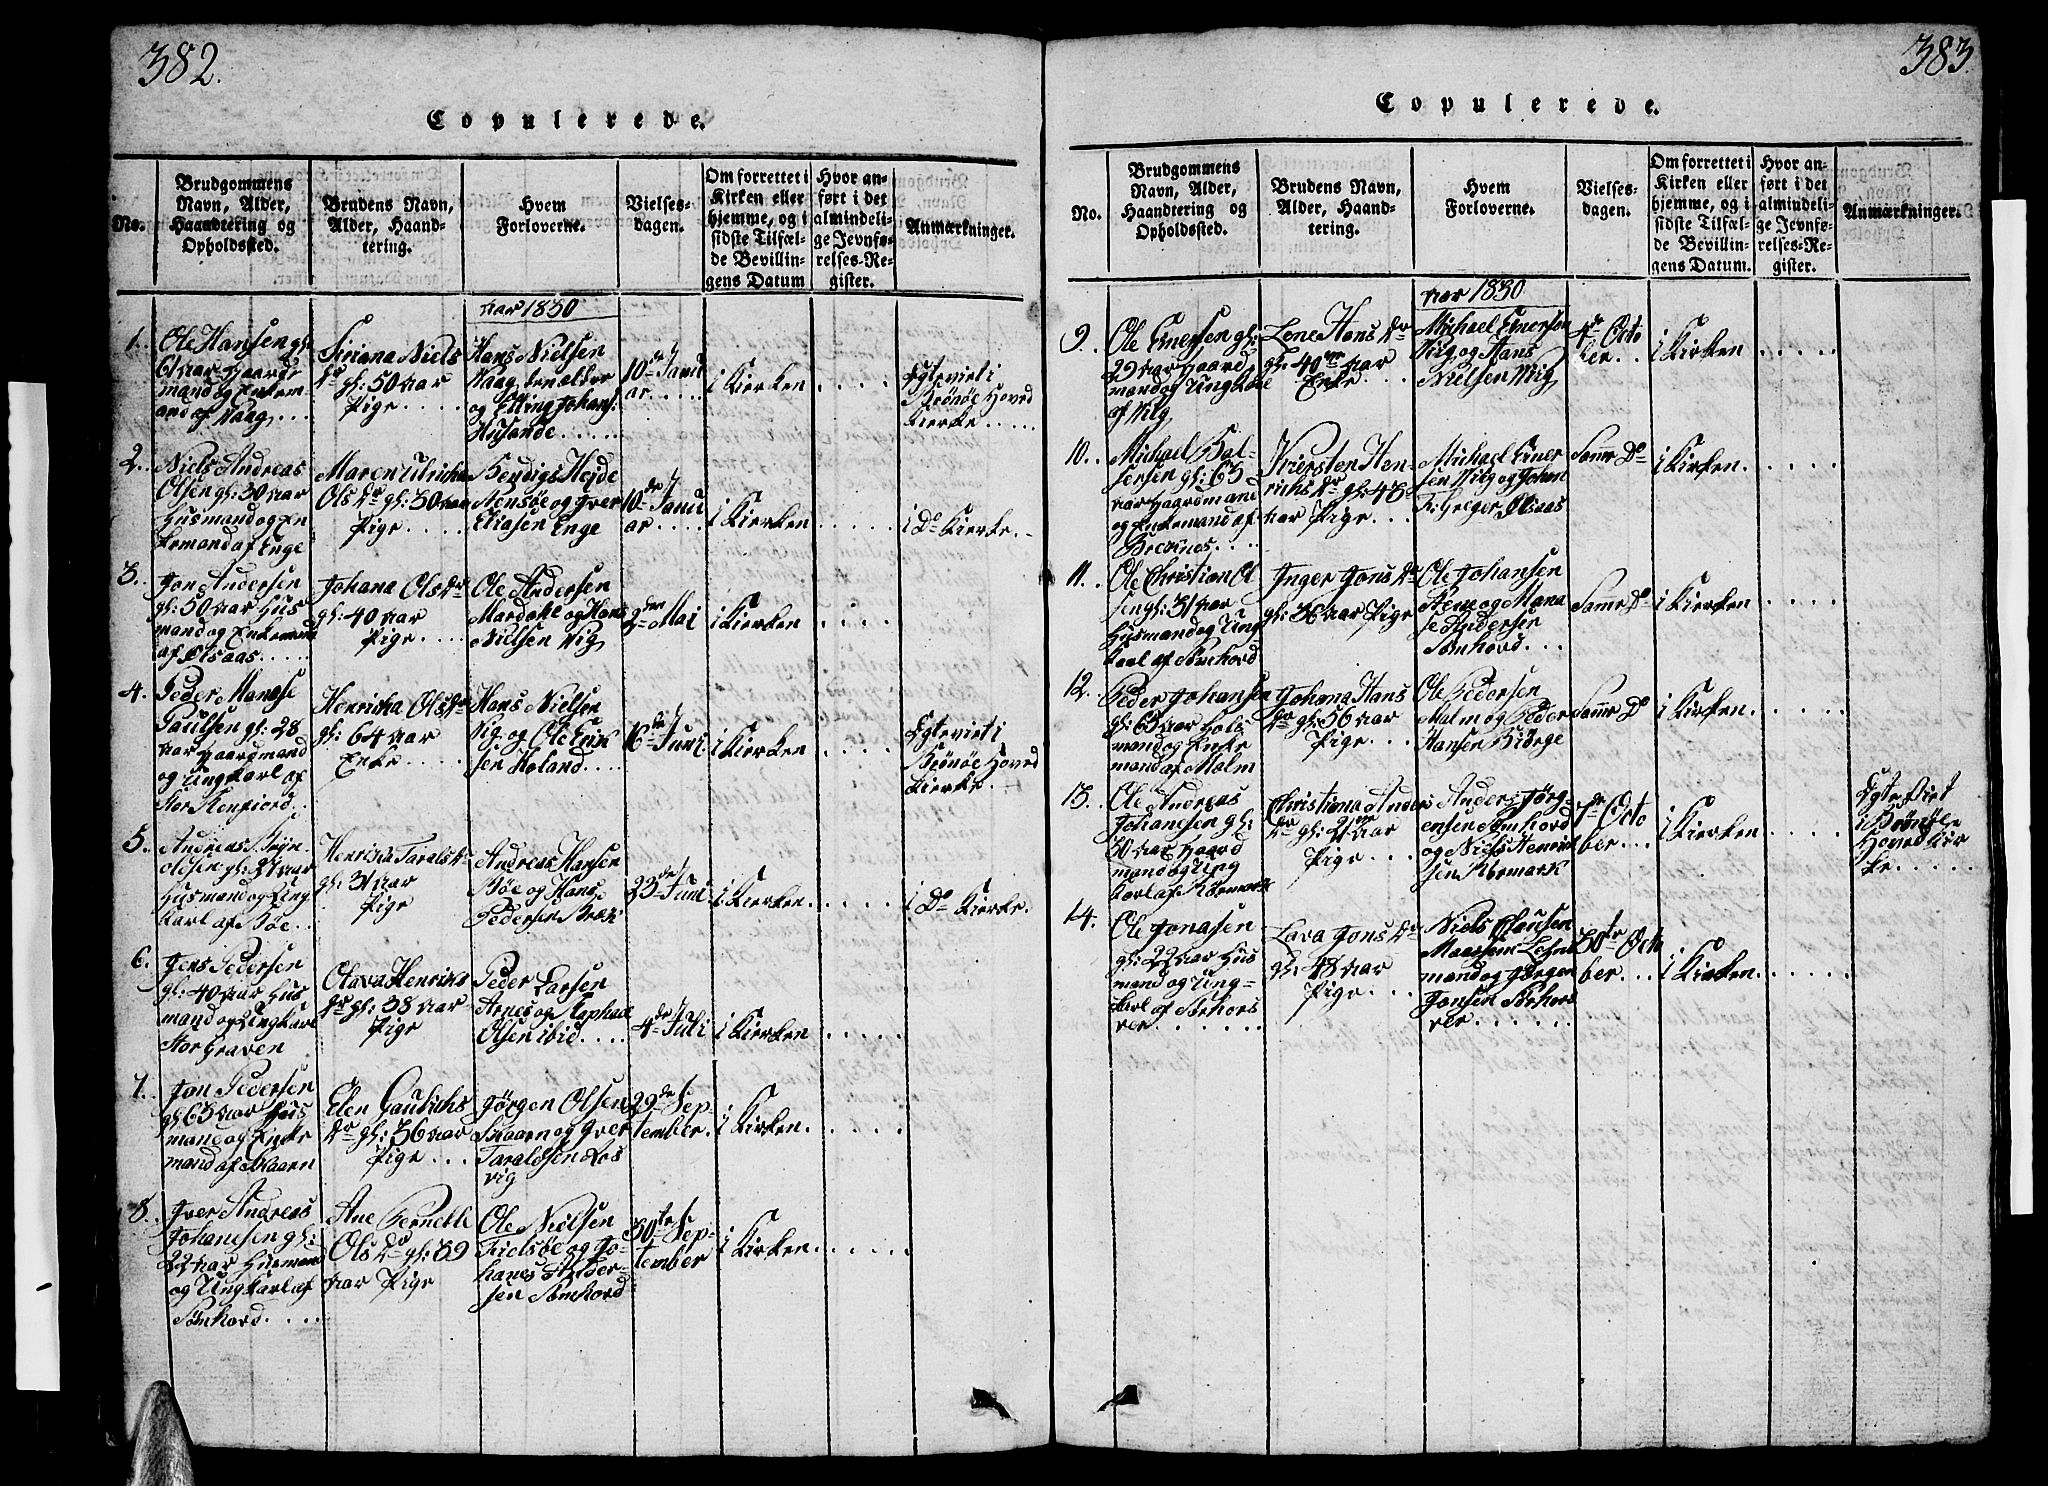 382.
Copulerede.
No.
Brudgommens
Navn, Alder,
Haandtering og
Opholdssted.
Brudens Navn,
Alder, Haand-
tering.
Hvem
Forloverne.
Vielses-
dagen.
Om forrettet i
Kirken eller
hjemme, og i
sidste Tilfæl-
de Bevillin-
gens Datum
Hvor an-
ført i det
almindeli-
ge Jevnfø-
relses-Re-
gister.
Anmærkninger.
Aar 1830
1.
Ole Hansen gl:
61 Aar Gaard
mand og Enkem
and af Vaag
Siriana Niels
Dr gl: 50 Aar
Pige
Hans Nielsen
Vaag den ældre
og Elling Johans:
Husande
10de Janu
ar
i Kierken
Egteviet i
Brönöe Hoved
Kierke
2.
Niels Andreas
Olsen gl: 30 Aar
Husmand og En
kemand af Enge
Maren Ulricka
Ols Dr gl: 30 Aar
Pige
Hendigs Hejde
og Iver
Eliasen Enge
10de Janu
ar
i Kierken
i Do Kierke
3.
Jon Andersen
gl: 50 Aar Hus
mand og Enkemand
af Olsaas
Johana Ols Dr
gl: 40 Aar
Pige
Ole Andersen
Mardahl og Hans
Nielsen Vig
2den Mai
i Kierken
4.
Peder Manase
Paulsen gl: 28
Aar Gaardmand
og Ungkarl af
Stor Kenfiord
Henricka Ols Dr
gl: 64 Aar
Enke
Hans Nielsen
Vig og Ole Erik
sen Holand
16de Juni
i Kierken
Egteviet i
Brönöe Hoved
Kierke
5.
Andreas Bryn
olsen gl: 31 Aar
Husmand og Ung
karl af Böe
Henrika Tarals Dr
gl: 31 Aar
Pige
Andreas Hansen
Böe og Hans
Pedersen
23de Juni
i Kierken
i Do Kierke
6.
Jens Pedersen
gl: 40 Aar Hus
mand og Ungkarl
Storgraven
Olava Henriks
Dr gl: 38 Aar
Pige
Peder Larsen
Arnes og
Olsen ibid
4de Juli
i Kierken
7.
Jon Pedersen
gl 63 Aar Hus
mand og Enke
mand af Skaarn
Elen Gaurichs
Dr gl: 36 Aar
Pige
Jörgen Olsen
Skaarn og Iver
Taraldsen Los
vig
29de Sep-
tember
i Kirken
8.
Iver Andreas
Johanesen gl:
22 Aar Husmand
og Ungkarl af
Sömhord
Ane Pernelle
Ols Dr gl: 39
Aar Pige
Ole Nielsen
Tielsöe og Jo-
hanes Ander-
sen Sömhord
30te Sep-
tember
i Kirken
383.
Copulerede.
No.
Brudgommens
Navn, Alder,
Haandtering og
Opholdssted.
Brudens Navn,
Alder, Haand-
tering.
Hvem
Forloverne.
Vielses-
dagen.
Om forrettet i
Kirken eller
hjemme, og i
sidste Tilfæl-
de Bevillin-
gens Datum.
Hvor an-
ført i det
almindeli-
ge Jevnfø-
relses-Re-
gister.
Anmærkninger.
Aar 1830
9.
Ole Enersen gl:
29 Aar Gaard
mand og Ungkarl
af Vig
Lene Hans Dr
gl: 40 Aar
Enke
Michael Enersen
Vig og Hans
Nielsen Vig
4de Octo
ber
i Kirken
10.
Michael Bal-
sersen gl: 63
Aar Gaardmand
og Enkemand af
Breknes
Kiersten Hen-
richs Dr gl: 43
Aar Pige
Michael Ener
sen Vig og Johan
Fr: Greger
Same Do
i Kirken
11.
Ole Christian Ol
sen gl: 31 Aar
Husmand og Ung
karl af Sömhord
Inger Jons Dr
gl: 36 Aar Pige
Ole Johansen
og Mana
se Andersen
Sömhord
Same Do
i Kierken
12.
Peder Johansen
gl: 63 Aar Hus
mand og Enke
mand af Malm
Johana Hans
Dr gl: 36 Aar
Pige
Ole Pedersen
Malm og Peder
Hansen Biörge
Same Do
i Kierken
13.
Ole Andreas
Johanesen gl:
30 Aar Gaard
mand og Ung
karl af Kormark
Christiana Anders
Dr gl: 21 Aar
Pige
Anders Jörg-
ensen Sömhord
og Niels Henrik
sen Kormark
7de Octo
ber
i Kierken
Egte Viet
i Brönöe
Hoved Kir
ke
14.
Ole Jonasen
gl: 22 Aar Hus
mand og Ung-
karl af Sörhors
ver
Lava Jons Dr
gl: 48 Aar
Pige
Niels Clausen
Maasøem Lehns
mand og Jörgen
Jonsen Sörhors
ver
30te Octo
ber
i Kirken